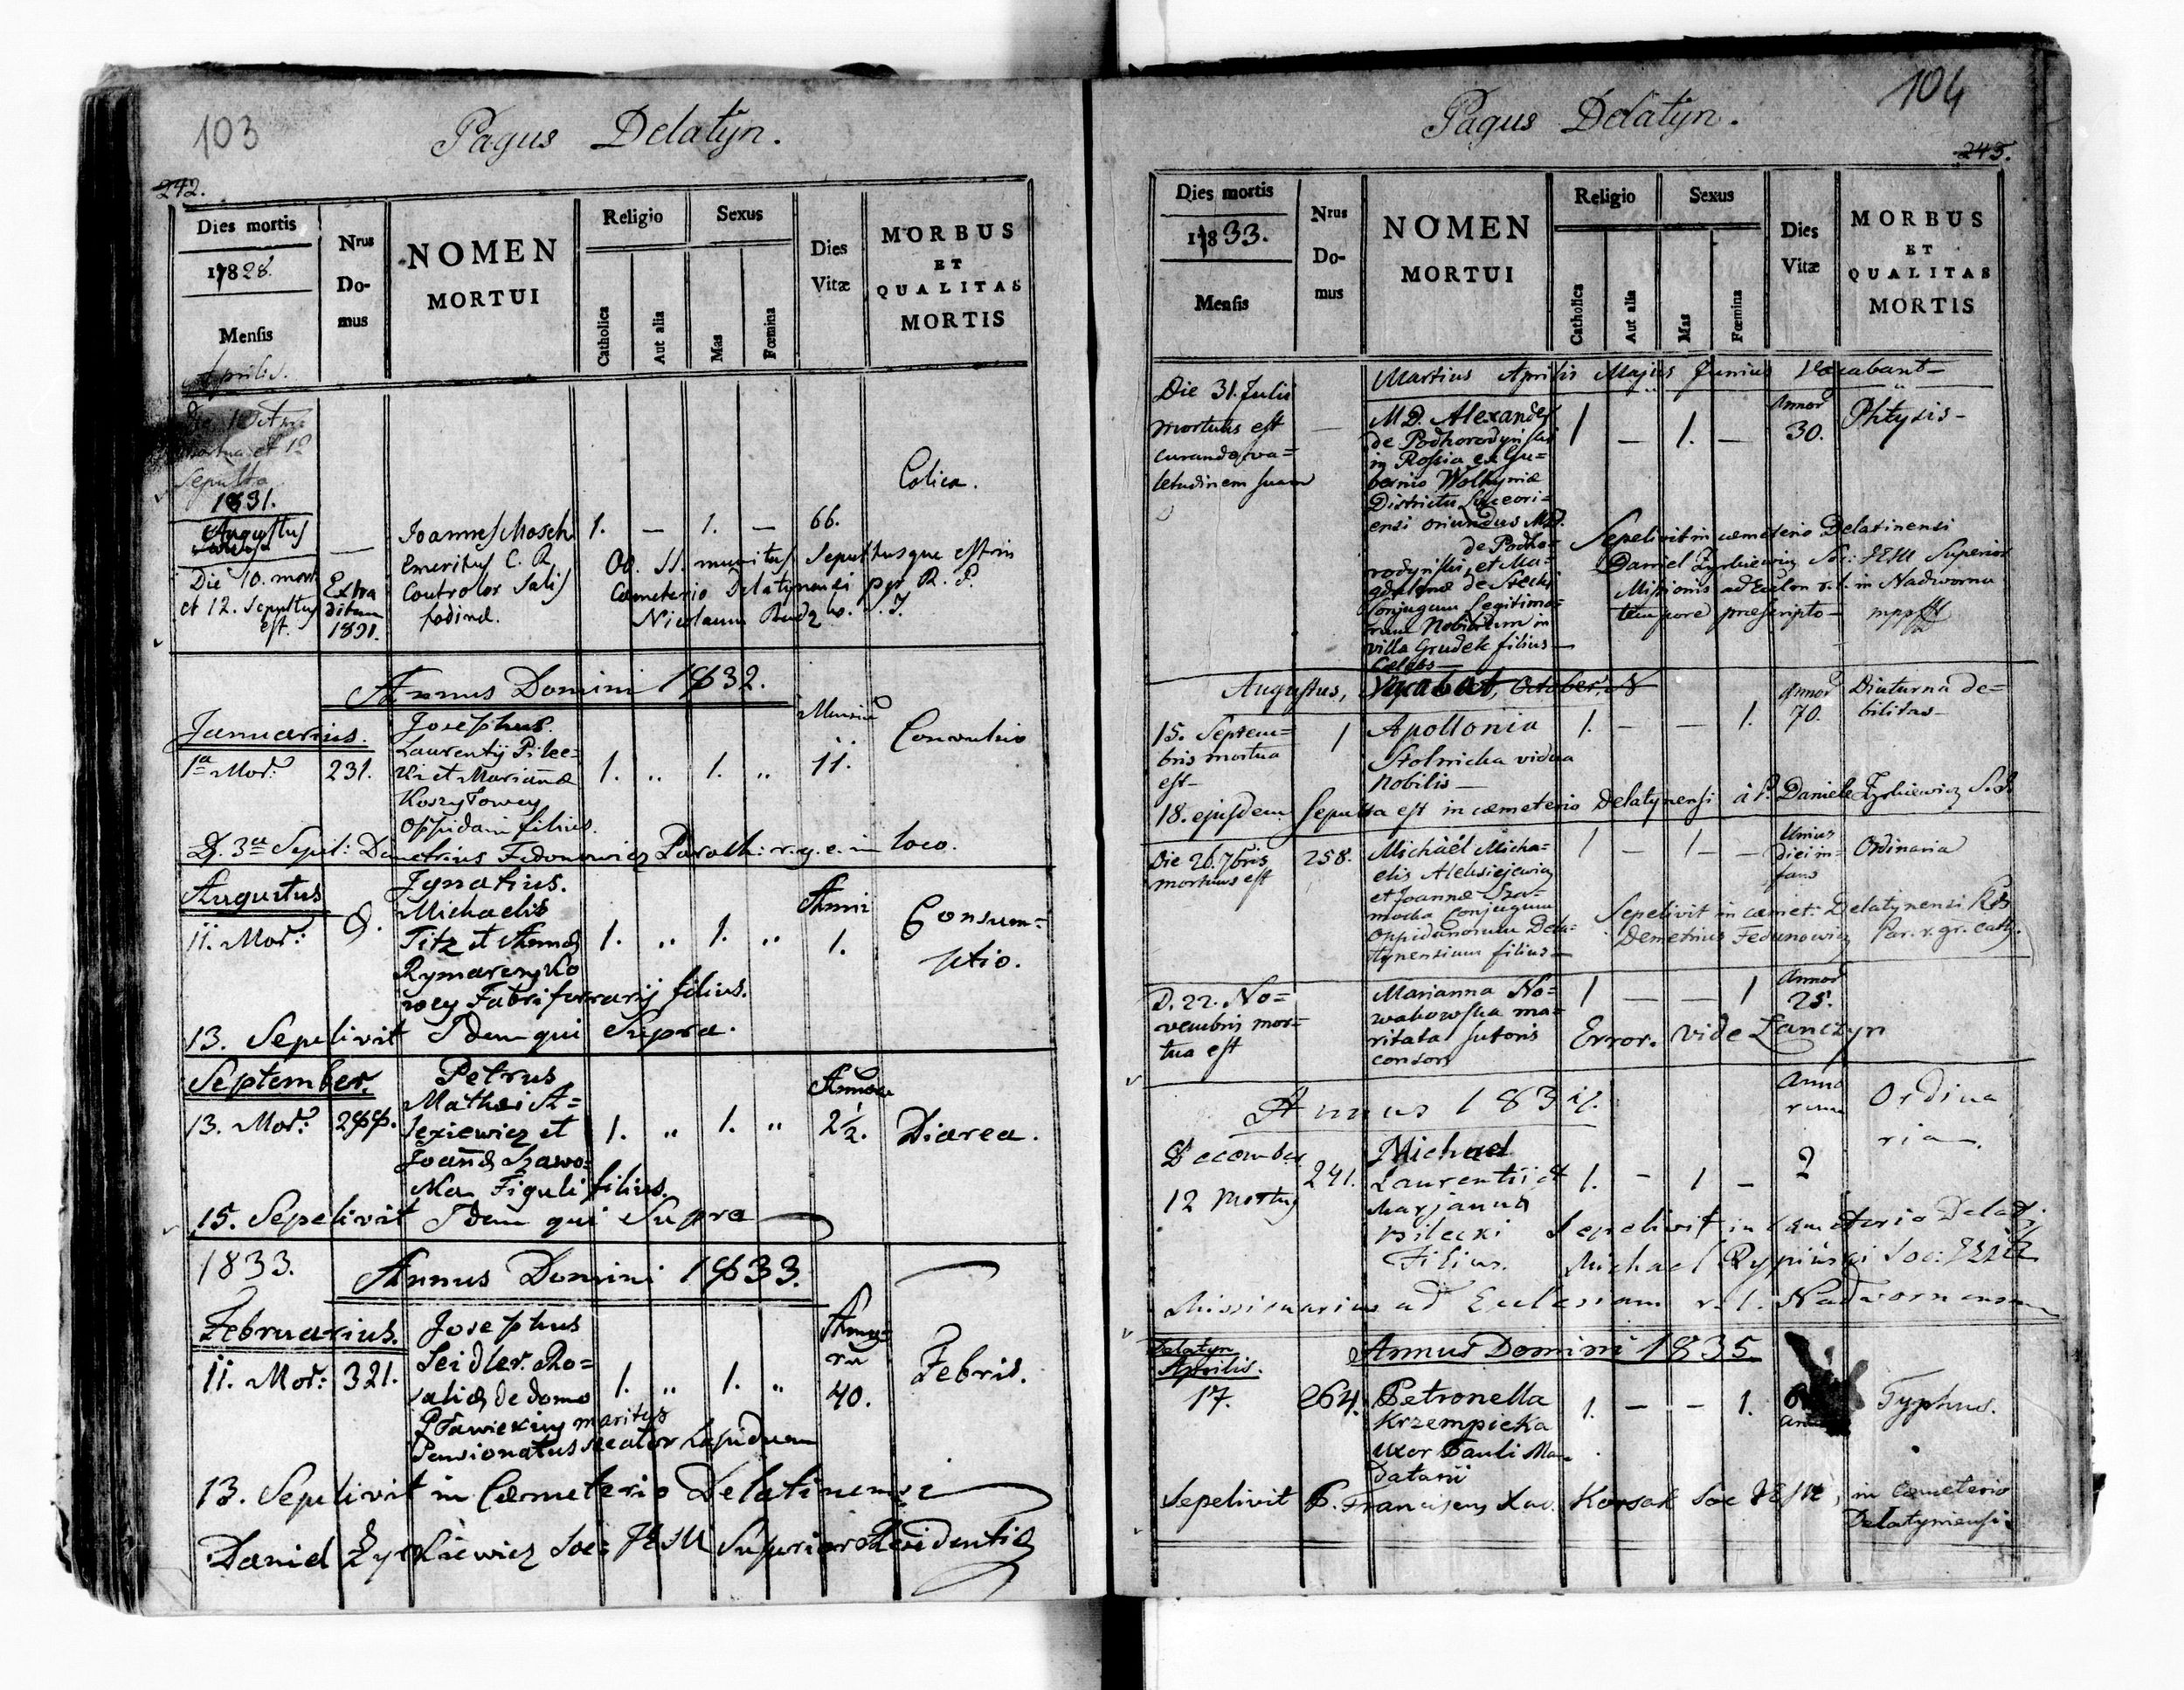 103
Pagus Delatyn.
242.
Dies mortis
Nrus Domus
NOMEN MORTUI
Religio
Sexus
Catholica
Aut alia
Mas
Fœmina
Dies Vitæ
MORBUS ET QUALITAS MORTIS
17828.
Mensis
Aprilis.
Sepulta
1831.
Augustus
Die 10. mort.
et 12. Sepultus
est.
Extra
ditum
1831.
Joannes Mosch
Emeritus C. R.
Controlor Salis
fodinæ.
1. — 1. — 66.
Colica.
Ob. SS. munitus Sepultusque est in
Cæmeterio Delatynensi per R. P.
Nicolaum S. J.
Annus Domini 1832.
Januarius.
1a Mor: 231.
Josephus.
Laurentij Pilec=
ki et Mariannæ
Koszytowey
Oppidani filius.
1. „ 1. „
Mensiū
11.
Convulsio
D. 3a Sepel: Demetrius Fedonowicz Paroch: r. g. c. in loco.
Augustus
11. Mor:
Ignatius.
Michaelis
Titz et Annæ
Rymarczyko
wey Fabri ferrarij filius.
1. „ 1. „
Anni
1.
Consum=
ptio.
13. Sepelivit Idem qui Supra.
September.
13. Mor:
Petrus
Mathæi A=
lexiewicz et
Joannæ Szawo=
ka Figuli filius.
1. „ 1. „
Annor
2½.
Diarea.
15. Sepelivit Idem qui Supra
1833. Annus Domini 1833.
Februarius.
11. Mor: 321.
Josephus
Seidler. Ro=
saliæ de domo
maritus
Pensionatus secator Lapidum
1. „ 1. „
Anno=
rū
40.
Febris.
13. Sepelivit in Cæmeterio Delatinensi
Daniel Zyrkiewicz Soc: JESU Superior Residentiæ
104
Pagus Delatyn.
243.
Dies mortis
Nrus Domus
NOMEN MORTUI
Religio
Sexus
Catholica
Aut alia
Mas
Fœmina
Dies Vitæ
MORBUS ET QUALITAS MORTIS
17833.
Mensis
Martius Aprilis Majus Junius Vacabant—
Die 31. Julii
mortuus est
curando va=
letudinem suam
M D. Alexander
de Podhorodyński
in Rossia ex Gu=
bernio Wolhyniæ
Districtu Luceori=
ensi oriundus MD.
de Podho=
rodyński, et Ma=
gdalenæ de
Conjugum Legitimo=
rum Nobilium in
villa Grudek filius—
Cælebs—
1 — 1. —
Annor
30.
Phtysis—
Sepelivit in cæmeterio Delatinensi
Daniel Zyrkiewicz Soc: JESU Superior
Missionis ad Eccles. r. l. in Nadworna
tempore præscripto— mpp
Augustus, Vacabat, October, N
15. Septem=
bris mortua
est—
1
Apollonia
Stolnicka vidua
Nobilis—
1. — — 1.
Annor
70.
Diuturna de=
bilitas—
18. ejusdem sepulta est in cæmeterio Delatynensi à P. Daniele Zyrkiewicz S. J.
Die 26. 7bris
mortuus est
258.
Michaël Micha=
elis Aleksiejewicz
et Joannæ Sza=
mocka Conjugum
Oppidanorum Dela=
tynensium filius—
1 — 1 —
Unius
diei in=
fans
Ordinaria
Sepelivit in cæmet: Delatynensi
Demetrius Fedunowicz Par. r. gr. cath.
D. 22. No=
vembris mor=
tua est
Marianna No=
wakowska ma=
ritata sutoris
consors
1 — — 1
Annor
25.
Error. vide Łanczyn
Annus 1834.
December
12 Mortus
241.
Michael
Laurentii et
Marjanna
Pilecki
Filius.
1. — 1 —
Anno
rum
2
Ordina
ria.
Sepelivit in Cæmeterio Delaty.
Michael Rypiński Soc: JESU
Missionarius ad Ecclesiam r. l. Nadwornensem
Delatyn
Aprilis.
Annus Domini 1835
17. 264.
Petronella
Krzempicka
uxor Pauli Man=
datarii
1. — — 1.
Typhus.
Sepelivit P. Franciscus Xav. Korsak Soc JESU, in cæmeterio
Delatyniensi.